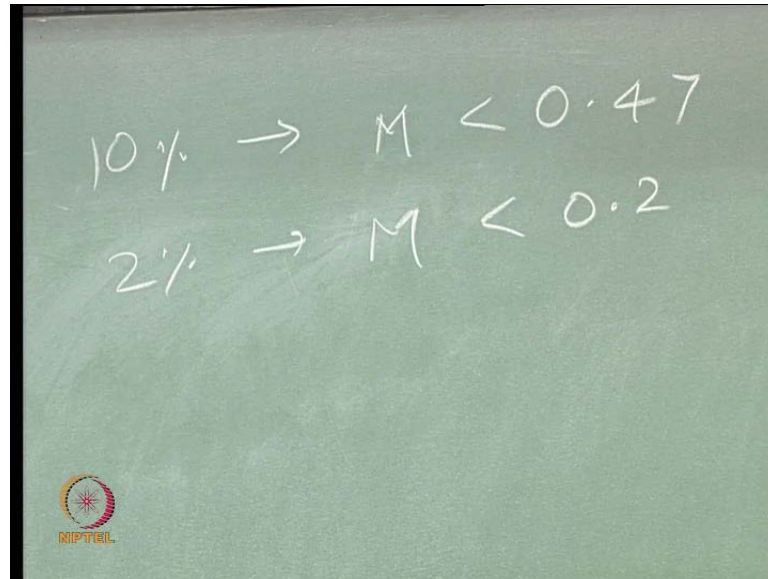 10% → M < 0.47
2% → M < 0.2
NPTEL